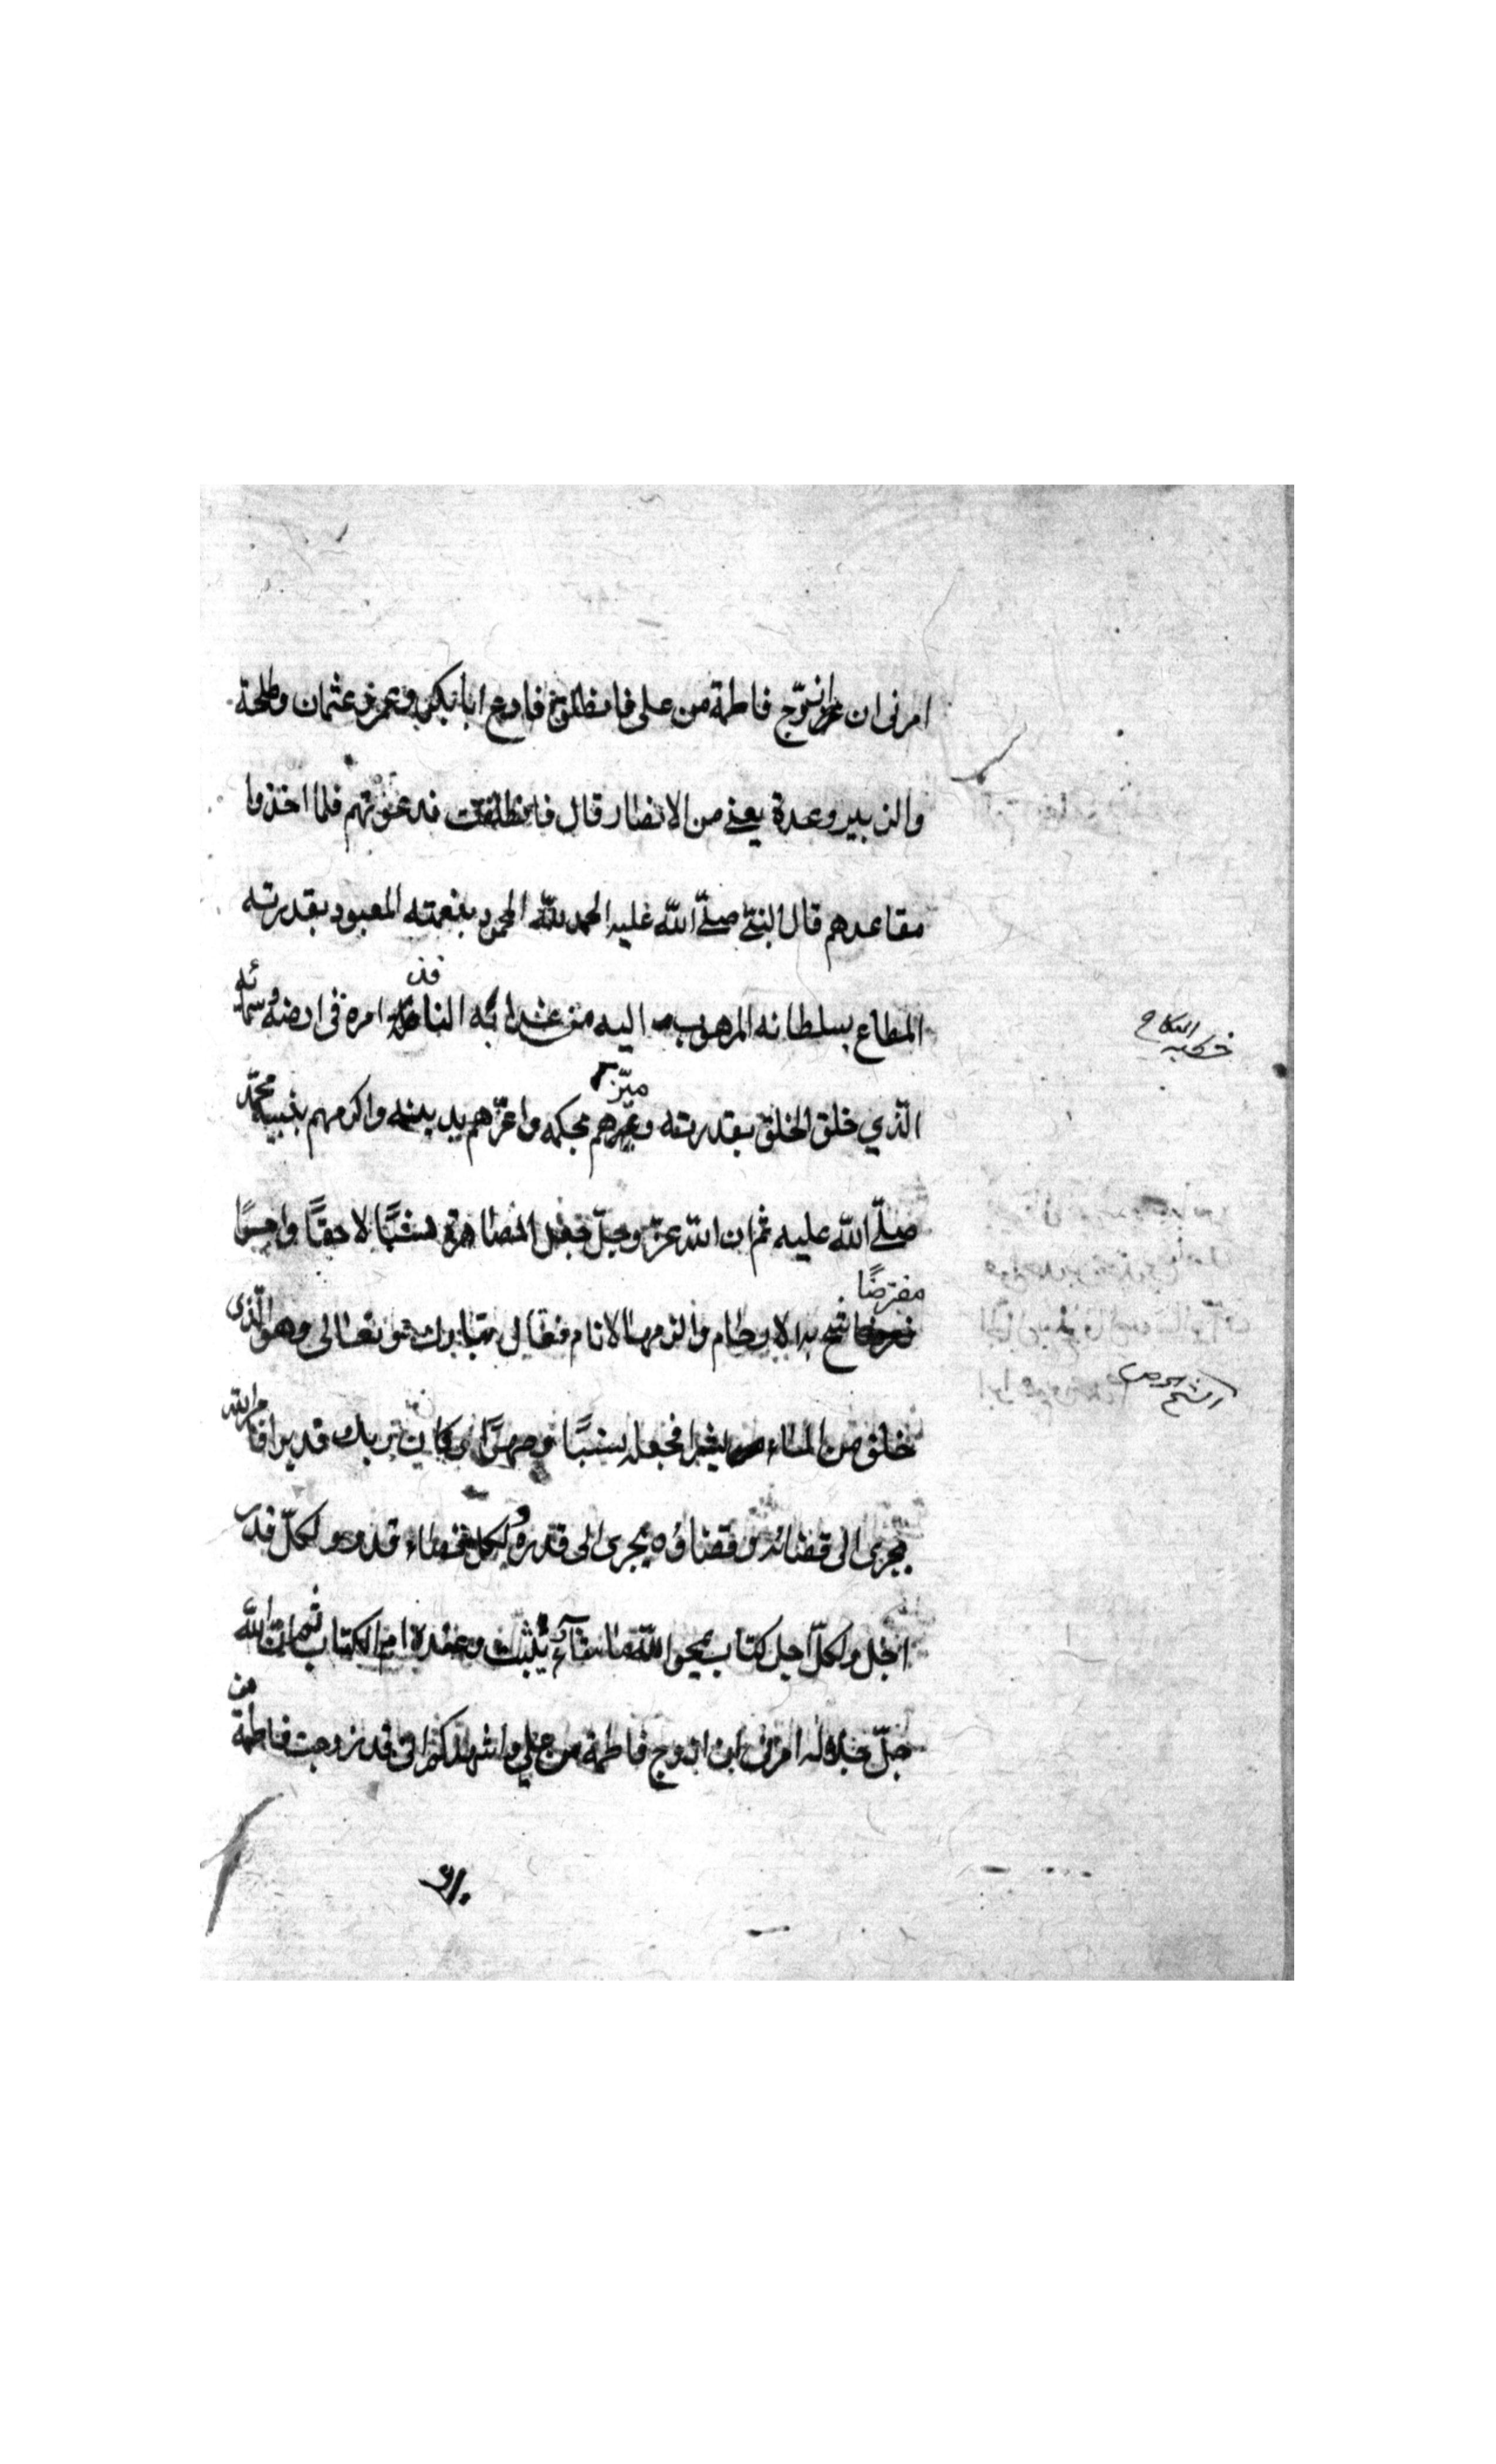 امرنى ان ازوّج فاطمة من على فانطلق فادع ابا بكر و عمر و عثمان وطلحة
والزبير وعدة يعنى من الانصار قال فانطلقت فدعوتهم فلما اخذوا
مقاعدهم قال النبىّ صلّى اللّه عليه الحمد للّه المحمود بنعمته المعبود بقدرته
المطاع بسلطانه المرهوب اليه من عذابه النافذ امره فى ارضه وسمائه
خطبه النكاح
الّذي خلق الخلق بقدرته وميّزهم بحكمه واعزّهم بدينه واكرمهم بنبيه محمّد
صلّى اللّه عليه ثم ان اللّه عزّ وجلّ جعل المصاهرة نسبًا لاحقًا وامرًا
مفترضًا
به الارحام والزمها الانام فقال تبارك وتعالى وهو الّذى
خلق من الماء بشرا فجعله نسبًا وصهرًا وكان ربك قديرا فامر اللّه
يجرى الى قضائه وقضاؤه يجرى الى قدره ولكل قضاء قدر ولكلّ قدر
اجل ولكلّ اجل كتاب يمحو اللّه ما يشاء ويثبت وعنده ام الكتاب ثم ان اللّه
جلّ جلاله امرنى ان ازوج فاطمة من على واشهدكم انى قد زوجت فاطمة
من